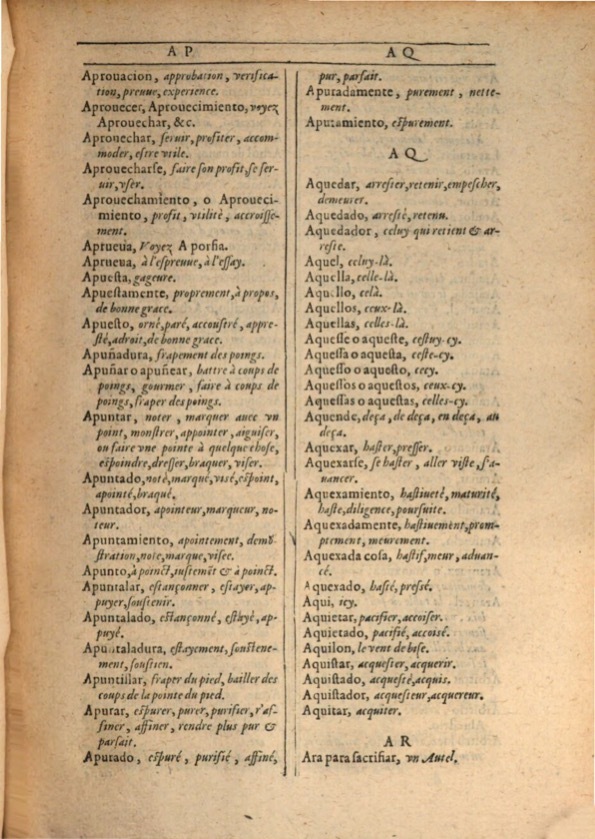 A P
Aprouacion, approbation, verifica-
tion, preuue, experience.
Aprouecer, Aprouecimiento, voyez
Aprouechar, &c.
Aprouechar, seruir, profiter, accom-
moder, estre vtile.
Aprouecharse, faire son profit, se ser-
uir, vser.
Aprouechamiento, o Aproueci-
miento, profit, vtilité, accroisse-
ment.
Aprueua, Voyez A porfia.
Aprueua, à l'espreuue, à l'essay.
Apuesta, gageure.
Apuestamente, proprement, à propos,
de bonne grace.
Apuesto, orné, paré, accoustré, appre-
sté, adroit, de bonne grace.
Apuñadura, frapement des poings.
Apuñar o apuñear, battre à coups de
poings, gourmer, faire à coups de
poings, fraper des poings.
Apuntar, noter, marquer auec vn
point, monstrer, appointer, aiguiser,
ou faire vne pointe à quelque chose,
espoindre, dresser, braquer, viser.
Apuntado, noté, marqué, visé, espoint,
apointé, braqué.
Apuntador, apointeur, marqueur, no-
teur.
Apuntamiento, apointement, demõ-
stration, note, marque, visee.
Apunto, à poinct, iustemẽt & à poinct.
Apuntalar, estançonner, estayer, ap-
puyer, soustenir.
Apuntalado, estançonné, estayé, ap-
puyé.
Apuntaladura, estayement, soustene-
ment, soustien.
Apuntillar, fraper du pied, bailler des
coups de la pointe du pied.
Apurar, espurer, purer, purifier, r'af-
finer, affiner, rendre plus pur &
parfait.
Apurado, espuré, purifié, affiné,
A Q
pur, parfait.
Apuradamente, purement, nette-
ment.
Apuramiento, espurement.
A Q
Aquedar, arrester, retenir, empescher,
demeurer.
Aquedado, arresté, retenu.
Aquedador, celuy qui retient & ar-
reste.
Aquel, celuy-là.
Aquella, celle-là.
Aquello, celà.
Aquellos, ceux-là.
Aquellas, celles-là.
Aquesse o aqueste, cestuy-cy.
Aquessa o aquesta, ceste-cy.
Aquesso o aquesto, cecy.
Aquessos o aquestos, ceux-cy.
Aquessas o aquestas, celles-cy.
Aquende, deça, de deça, en deça, au
deça.
Aquexar, haster, presser.
Aquexarse, se haster, aller viste, s'a-
uancer.
Aquexamiento, hastiueté, maturité,
haste, diligence, poursuite.
Aquexadamente, hastiuement, prom-
ptement, meurement.
Aquexada cosa, hastif, meur, aduan-
cé.
Aquexado, hasté, pressé.
Aqui, icy.
Aquietar, pacifier, accoiser.
Aquietado, pacifié, accoisé.
Aquilon, le vent de bise.
Aquistar, acquester, acquerir.
Aquistado, acquesté, acquis.
Aquistador, acquesteur, acquereur.
Aquitar, acquiter.
A R
Ara para sacrifiar, vn Autel.